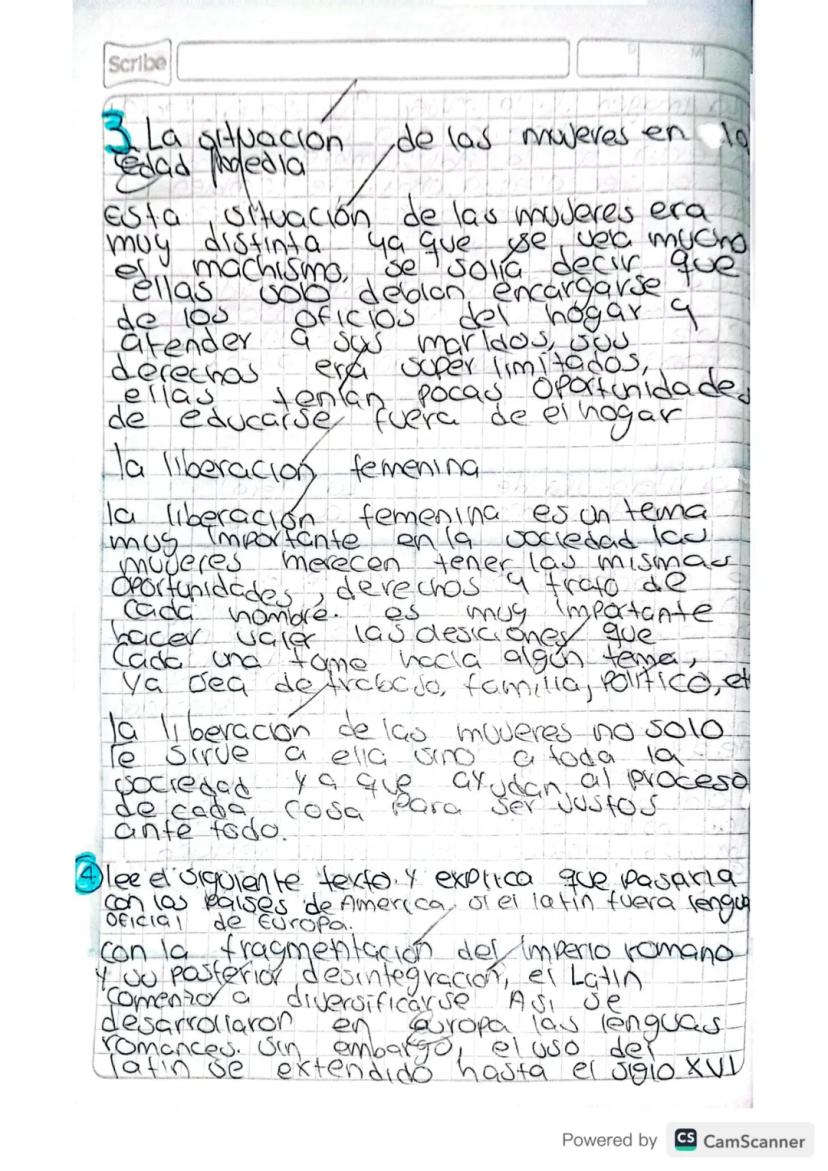 Scribe
3. La situación de las mujeres en la
edad Media
Esta situación de las mujeres era
muy distinta ya que se veá mucho
el machismo, se solía decir que
ellas solo debían encargarse
de los oficios del hogar y
atender a sus maridos, sus
derechos era súper limitados,
ellas tenían pocas oportunidades
de educarse fuera de el hogar
la liberación femenina
la liberación femenina es un tema
muy importante en la sociedad las
mujeres merecen tener las mismas
oportunidades, derechos y trato de
cada hombre. es muy importante
hacer valer las desiciones que
cada una tome hacia algún tema,
ya sea de trabajo, familia, político, et
la liberación de las mujeres no solo
le sirve a ella sino a toda la
sociedad ya que ayudan al proceso
de cada cosa para ser justos
ante todo.
4 lee el siguiente texto y explica que pasaría
con los países de America si el latín fuera lengua
oficial de Europa.
con la fragmentación del imperio romano
y su posterior desintegración, el Latín
comenzo a diversificarse Asi se
desarrollaron en europa las lenguas
romances. Sin embargo, el uso del
latín se extendido hasta el siglo XVI
Powered by CS CamScanner